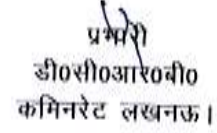 प्रभारी
डी0सी0आर0बी0
कमिनरेट लखनऊ।